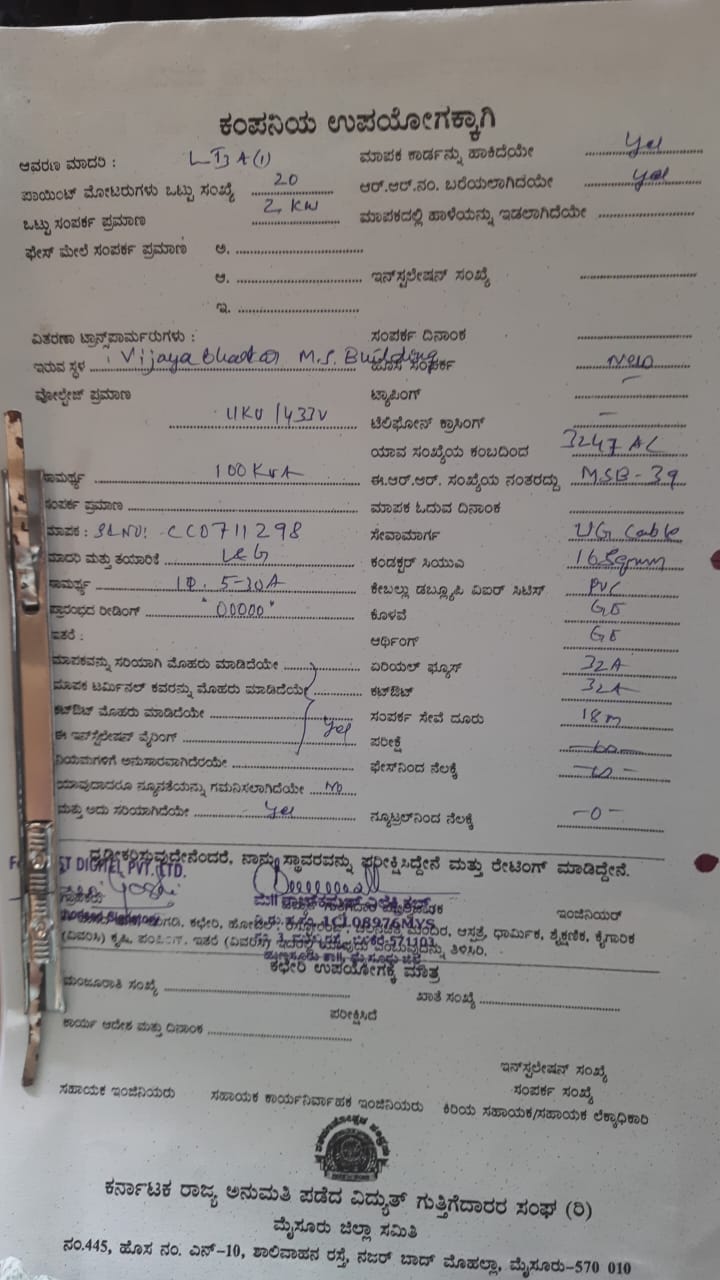 ಕಂಪನಿಯ ಉಪಯೋಗಕ್ಕಾಗಿ
ಆವರಣ ಮಾದರಿ : LT3 A(1) ಮಾಪಕ ಕಾರ್ಡನ್ನು ಹಾಕಿದೆಯೇ Yes
ಪಾಯಿಂಟ್ ಮೋಟರುಗಳು ಒಟ್ಟು ಸಂಖ್ಯೆ 20 ಆರ್.ಆರ್.ನಂ. ಬರೆಯಲಾಗಿದೆಯೇ yes
ಒಟ್ಟು ಸಂಪರ್ಕ ಪ್ರಮಾಣ 2 KW ಮಾಪಕದಲ್ಲಿ ಹಾಳೆಯನ್ನು ಇಡಲಾಗಿದೆಯೇ
ಫೇಸ್ ಮೇಲೆ ಸಂಪರ್ಕ ಪ್ರಮಾಣ ಅ.
ಆ. ಇನ್‌ಸ್ಟಲೇಷನ್ ಸಂಖ್ಯೆ
ಇ.
ವಿತರಣಾ ಟ್ರಾನ್ಸ್‌ಫಾರ್ಮರುಗಳು : ಸಂಪರ್ಕ ದಿನಾಂಕ
ಇರುವ ಸ್ಥಳ : Vijaya Bhaskar M.S. Building ಹೊಸ ಸಂಪರ್ಕ New
ವೋಲ್ಟೇಜ್ ಪ್ರಮಾಣ ಟ್ಯಾಪಿಂಗ್ —
11KV /433V ಟೆಲಿಫೋನ್ ಕ್ರಾಸಿಂಗ್ —
ಯಾವ ಸಂಖ್ಯೆಯ ಕಂಬದಿಂದ 3247 AC
ಸಾಮರ್ಥ್ಯ 100 KVA ಈ.ಆರ್.ಆರ್. ಸಂಖ್ಯೆಯ ನಂತರದ್ದು MSB-39
ಸಂಪರ್ಕ ಪ್ರಮಾಣ ಮಾಪಕ ಓದುವ ದಿನಾಂಕ
ಮಾಪಕ : SL NO: CC0711298 ಸೇವಾಮಾರ್ಗ UG Cable
ಮಾದರಿ ಮತ್ತು ತಯಾರಿಕೆ L&G ಕಂಡಕ್ಟರ್ ಸಿಯುಎ 16Sqmm
ಸಾಮರ್ಥ್ಯ 1Φ. 5-30A ಕೇಬಲ್ಲು ಡಬ್ಲ್ಯೂಪಿ ವಿಐಆರ್ ಸಿಟಿಸ್ PVC
ಪ್ರಾರಂಭದ ರೀಡಿಂಗ್ "00000" ಕೊಳವೆ GE
ಇತರೆ : ಆರ್ಥಿಂಗ್ GE
ಮಾಪಕವನ್ನು ಸರಿಯಾಗಿ ಮೊಹರು ಮಾಡಿದೆಯೇ ಏರಿಯಲ್ ಫ್ಯೂಸ್ 32A
ಮಾಪಕ ಟರ್ಮಿನಲ್ ಕವರನ್ನು ಮೊಹರು ಮಾಡಿದೆಯೇ ಕಟ್‌ಔಟ್ 32A
ಕಟ್‌ಔಟ್ ಮೊಹರು ಮಾಡಿದೆಯೇ ಸಂಪರ್ಕ ಸೇವೆ ದೂರು 18m
ಈ ಇನ್‌ಸ್ಟಲೇಷನ್ ವೈರಿಂಗ್ Yes ಪರೀಕ್ಷೆ
ನಿಯಮಗಳಿಗೆ ಅನುಸಾರವಾಗಿದೆರಯೇ ಫೇಸ್‌ನಿಂದ ನೆಲಕ್ಕೆ
ಯಾವುದಾದರೂ ನ್ಯೂನತೆಯನ್ನು ಗಮನಿಸಲಾಗಿದೆಯೇ No
ಮತ್ತು ಅದು ಸರಿಯಾಗಿದೆಯೇ Yes ನ್ಯೂಟ್ರಲ್‌ನಿಂದ ನೆಲಕ್ಕೆ -0-
ದೃಢೀಕರಿಸುವುದೇನೆಂದರೆ, ನಾನು ಸ್ಥಾವರವನ್ನು ಪರೀಕ್ಷಿಸಿದ್ದೇನೆ ಮತ್ತು ರೇಟಿಂಗ್ ಮಾಡಿದ್ದೇನೆ.
DIGNEL PVT. LTD.
ಗ್ರಾಹಕರು ಇಂಜಿನಿಯರ್
1CL08976MYS
ಮಂದಿರ, ಆಸ್ಪತ್ರೆ, ಧಾರ್ಮಿಕ, ಶೈಕ್ಷಣಿಕ, ಕೈಗಾರಿಕ
(ವಿವರಿಸಿ) ಕೃಷಿ, ಇತರೆ ತಿಳಿಸಿರಿ.
ಕಛೇರಿ ಉಪಯೋಗಕ್ಕೆ ಮಾತ್ರ
ಮಂಜೂರಾತಿ ಸಂಖ್ಯೆ ಖಾತೆ ಸಂಖ್ಯೆ
ಪರೀಕ್ಷಿಸಿದೆ
ಕಾರ್ಯ ಆದೇಶ ಮತ್ತು ದಿನಾಂಕ
ಇನ್‌ಸ್ಟಲೇಷನ್ ಸಂಖ್ಯೆ
ಸಂಪರ್ಕ ಸಂಖ್ಯೆ
ಸಹಾಯಕ ಇಂಜಿನಿಯರು ಸಹಾಯಕ ಕಾರ್ಯನಿರ್ವಾಹಕ ಇಂಜಿನಿಯರು ಕಿರಿಯ ಸಹಾಯಕ/ಸಹಾಯಕ ಲೆಕ್ಕಾಧಿಕಾರಿ
ಕರ್ನಾಟಕ ರಾಜ್ಯ ಅನುಮತಿ ಪಡೆದ ವಿದ್ಯುತ್ ಗುತ್ತಿಗೆದಾರರ ಸಂಘ (ರಿ)
ಮೈಸೂರು ಜಿಲ್ಲಾ ಸಮಿತಿ
ನಂ.445, ಹೊಸ ನಂ. ಎನ್-10, ಶಾಲಿವಾಹನ ರಸ್ತೆ, ನಜರ್ ಬಾದ್ ಮೊಹಲ್ಲಾ, ಮೈಸೂರು-570 010